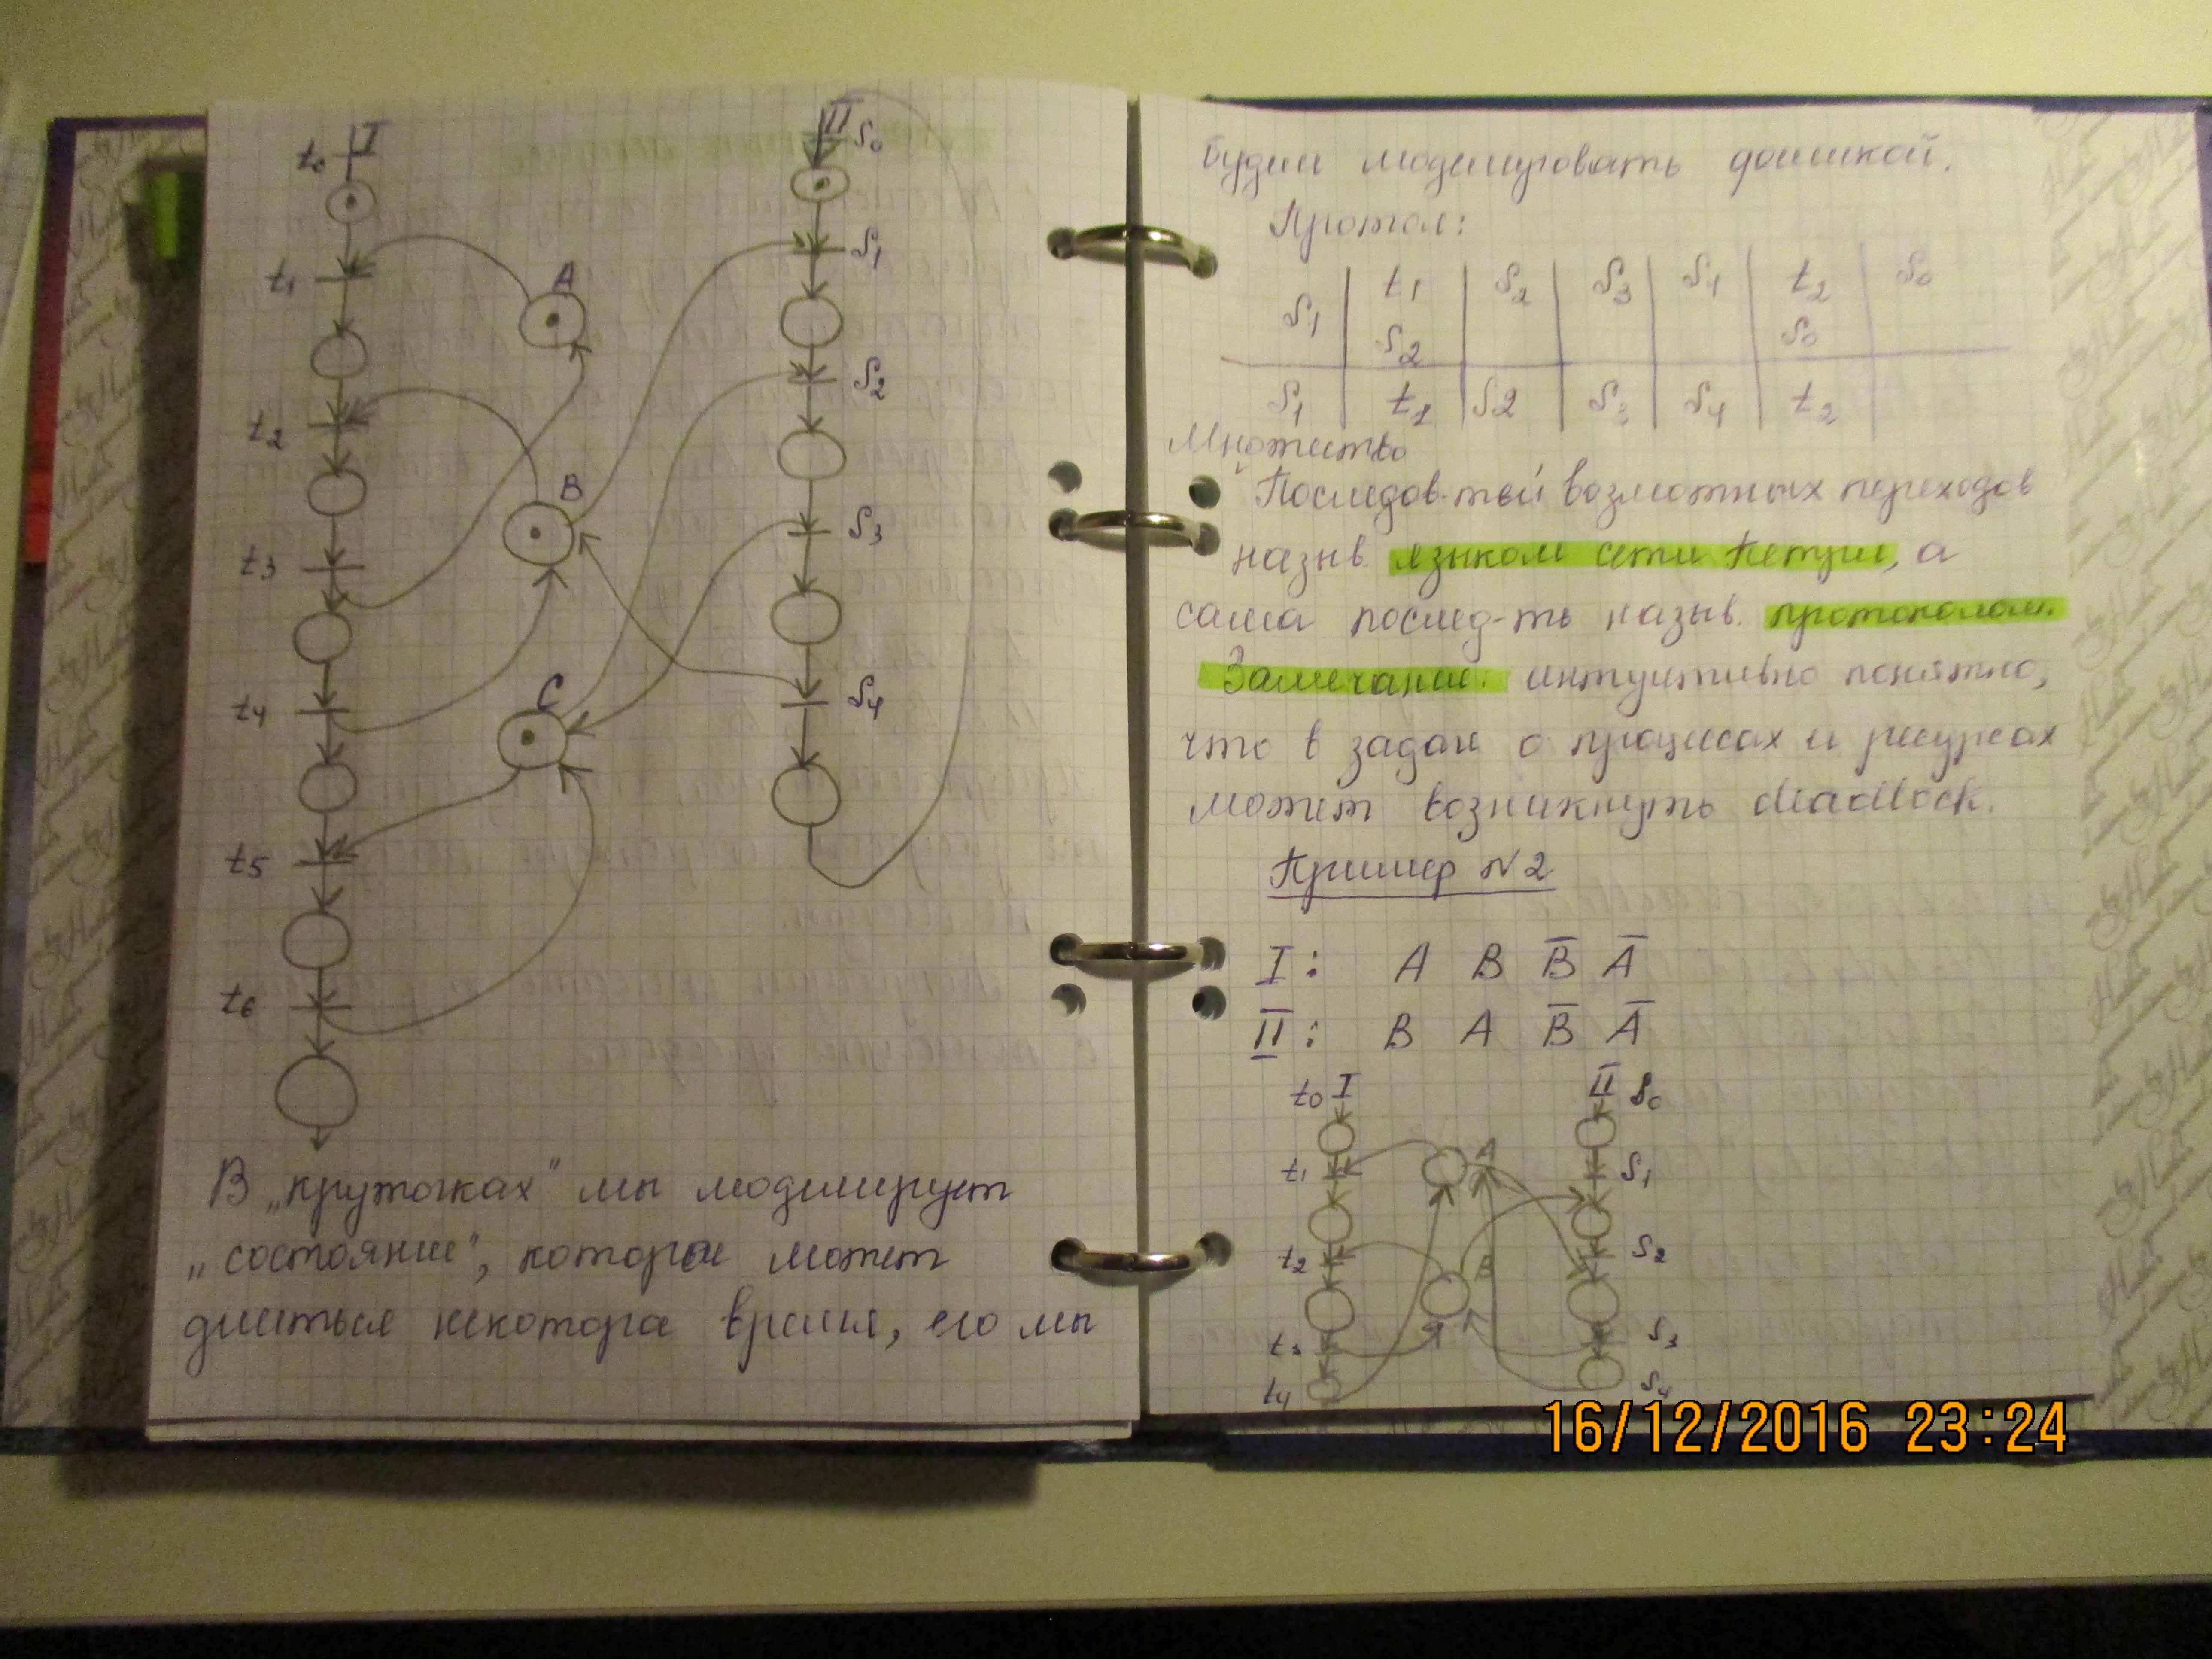 I
t₀
t₁
t₂
t₃
t₄
t₅
t₆
A
B
C
II S₀
S₁
S₂
S₃
S₄
В „кружочках" мы моделирует
„состояние", которое может
длиться некотора время, его мы
будем моделировать фишкой.
Протокол:
S₁ | t₁ | S₂ | S₃ | S₄ | t₂ | S₀
S₂ S₀
S₁ | t₁ | S₂ | S₃ | S₄ | t₂
Множество
Последов-тей возможных переходов
назыв. языком сети Петри, а
сама послед-ть назыв. протоколом.
Замечание: интуитивно понятно,
что в задаче о процессах и ресурсах
может возникнуть deadlock.
Пример №2
I: A B B̅ A̅
II: B A B̅ A̅
t₀ I II S₀
t₁ A S₁
t₂ B S₂
t₃ S₃
t₄ S₄
16/12/2016 23:24